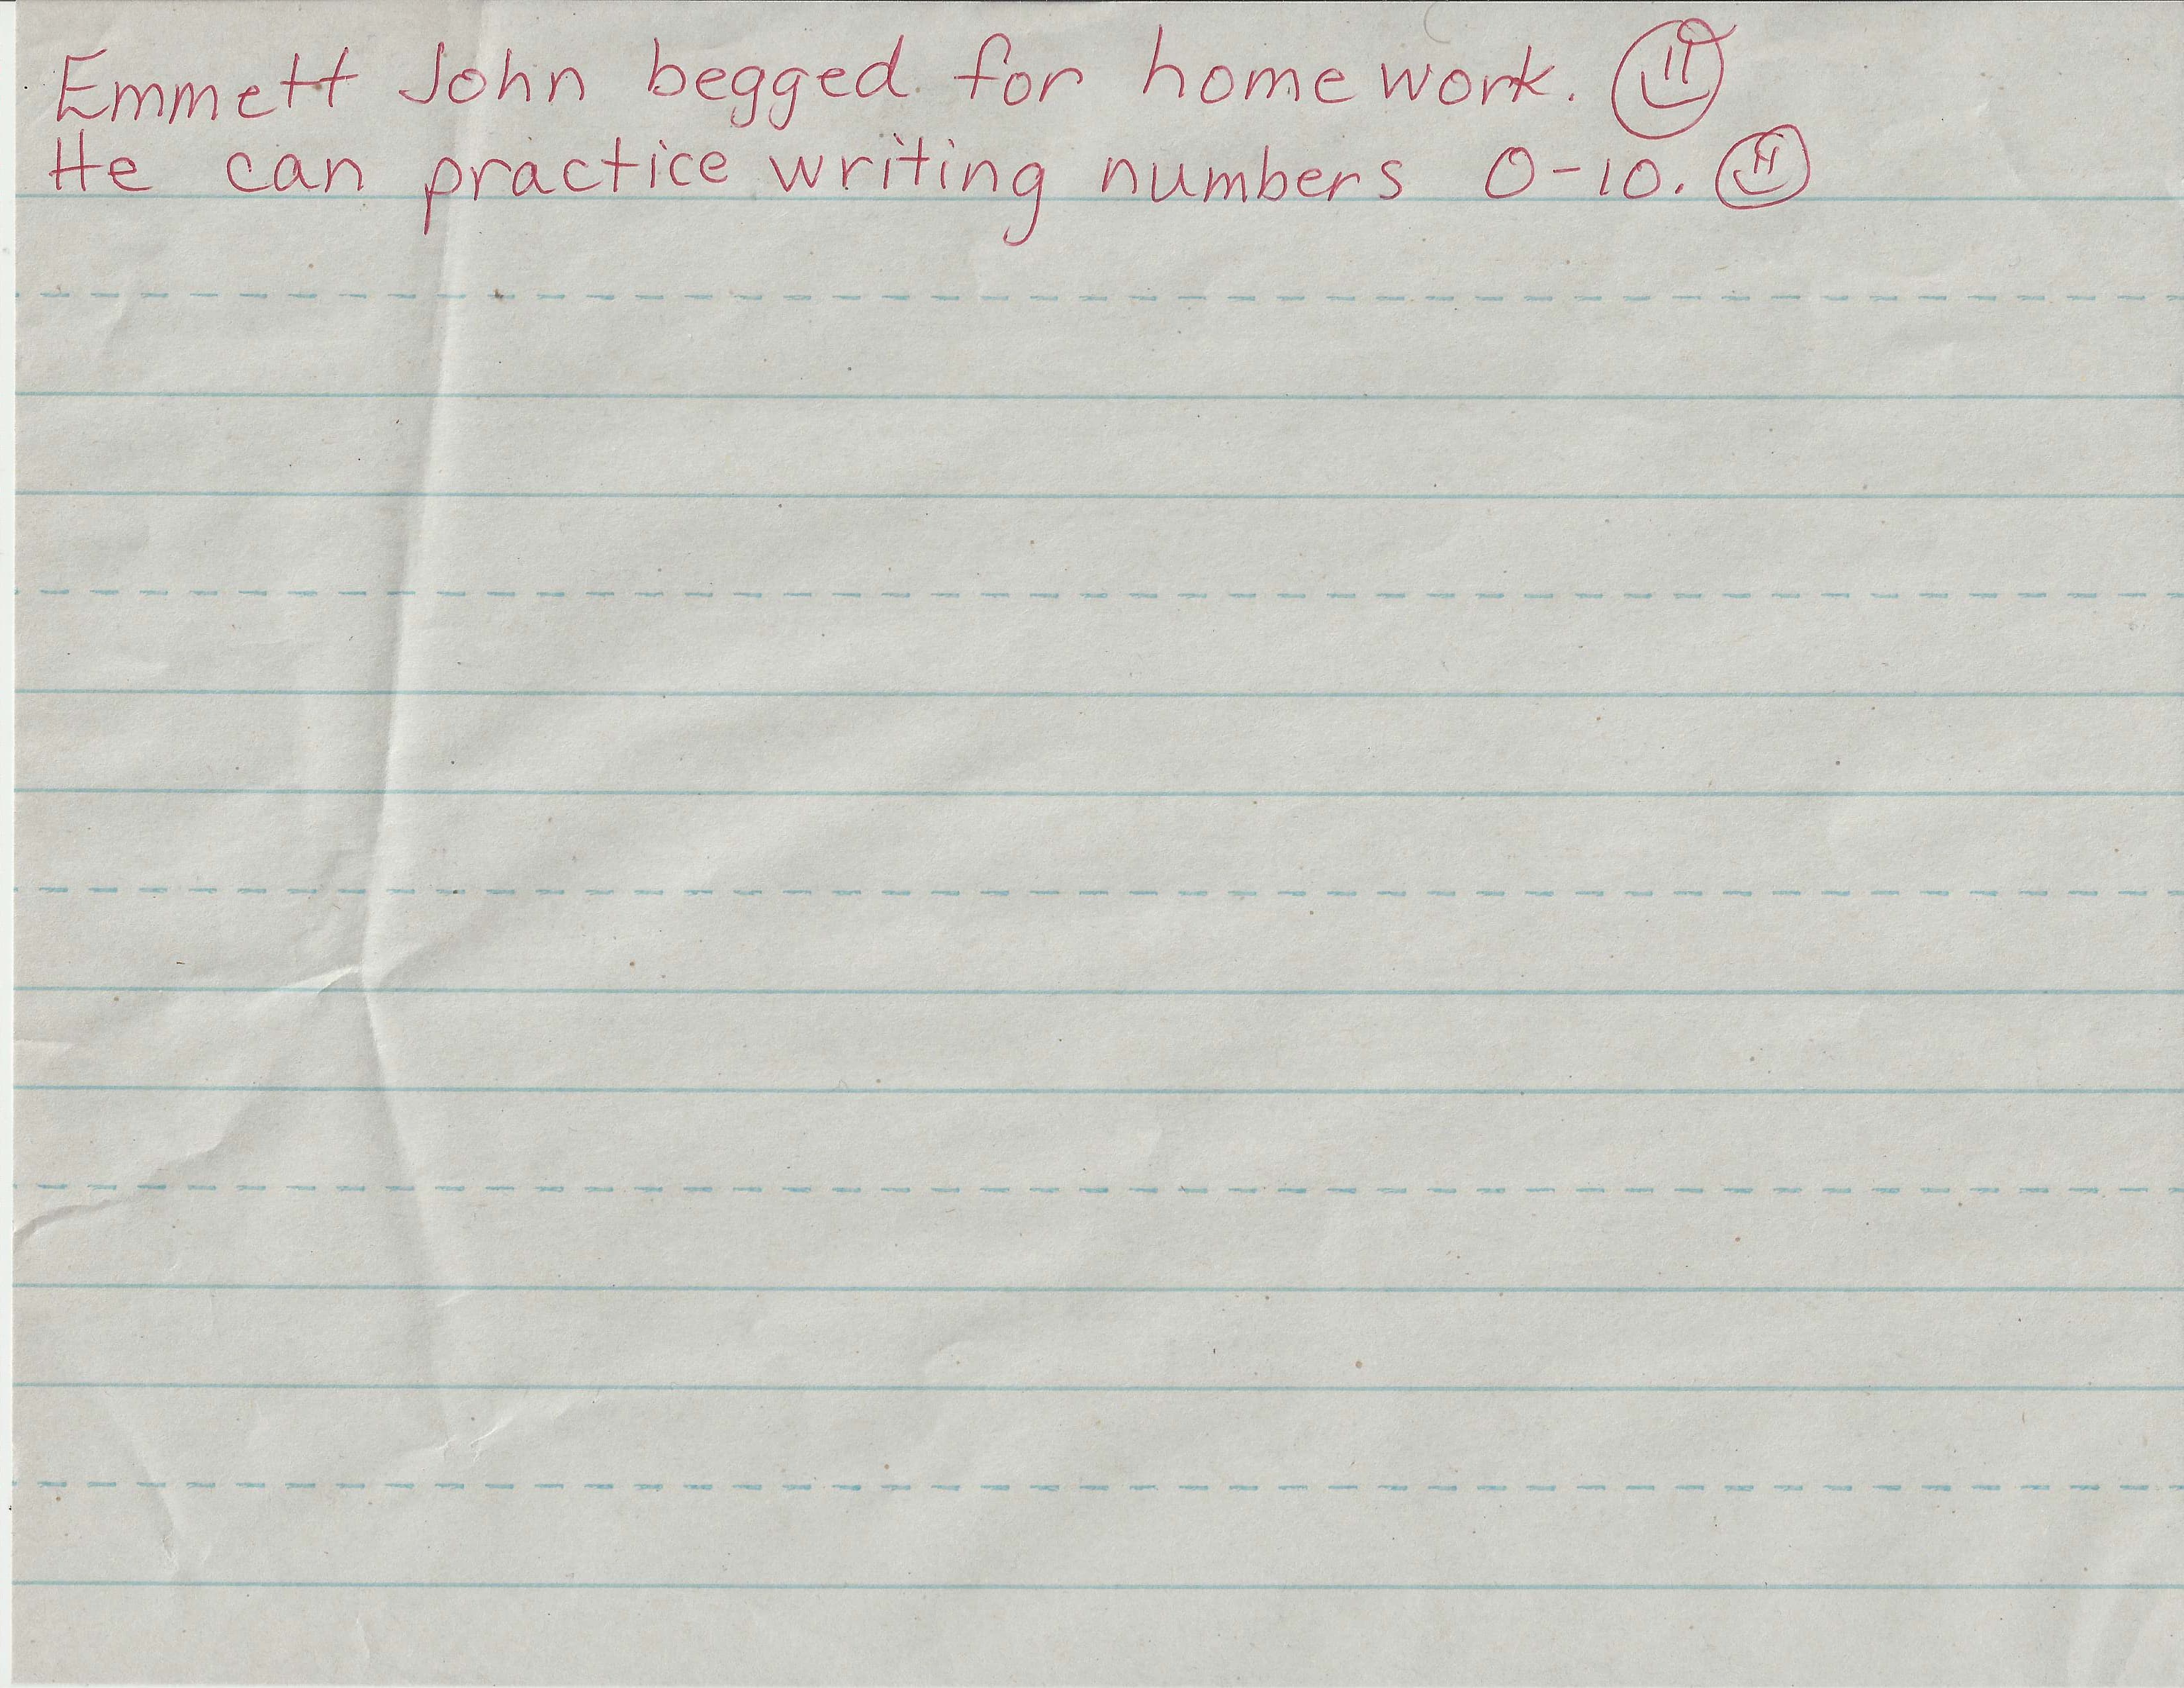 Emmett John begged for homework.
He can practice writing numbers 0-10.